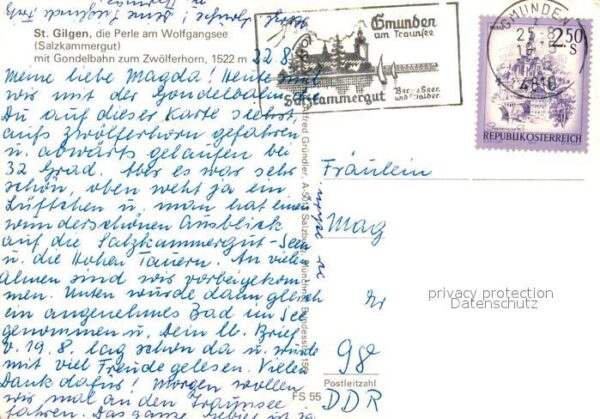 St. Gilgen, die Perle am Wolfgangsee
(Salzkammergut)
mit Gondelbahn zum Zwölferhorn, 1522 m
22.8.
Meine liebe Magda! Heute sind
wir mit der Gondelbahn, die
Du auf dieser Karte siehst,
aufs Zwölferhorn gefahren
u. abwärts gelaufen bei
32 Grad. Aber es war sehr
schön, oben weht ja ein
Lüftchen u. man hat einen
wunderschönen Ausblick
auf die Salzkammergut-Seen
u. die Hohen Tauern. An vielen
Almen sind wir vorbeigekom
men. Unten wurde dann gleich
ein angenehmes Bad im See
genommen u. Dein lb. Brief
v. 19.8. lag schon da u. wurde
mit viel Freude gelesen. Vielen
Dank dafür! Morgen wollen
wir mal an den Traunsee
fahren. Das ganze Gebiet ist ja
Gmunden
am Traunsee
Salzkammergut
Berge Seen
und Wälder
GMUNDEN
25.8.
4810
2.50
S
REPUBLIK ÖSTERREICH
Fräulein
Mag
98
Postleitzahl
DDR
FS 55
privacy protection
Datenschutz